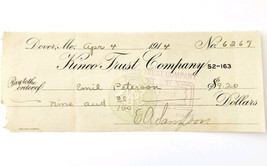 Dover, Me. Apr 4 1914 No. 6267
Kineo Trust Company 52-163
Pay to the order of Emil Peterson $9.20
Nine and 20/100 Dollars